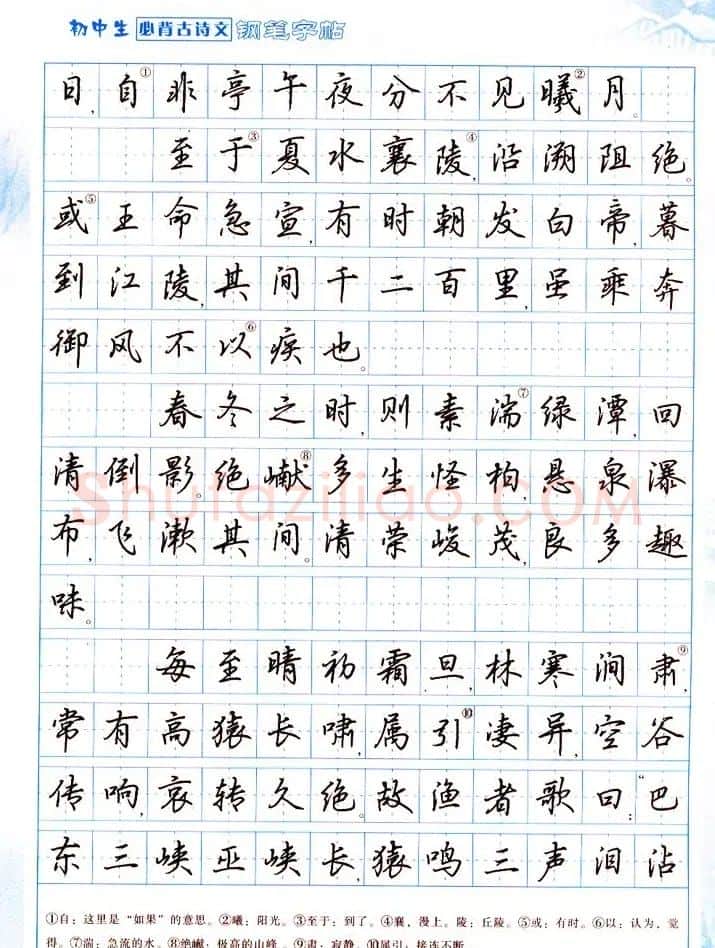 初中生 必背古诗文 钢笔字帖
日,自①非亭午夜分不见曦②月。
至于③夏水襄陵④,沿溯阻绝。
或⑤王命急宣,有时朝发白帝,暮
到江陵,其间千二百里,虽乘奔
御风不以⑥疾也。
春冬之时,则素湍⑦绿潭,回
清倒影。绝巘⑧多生怪柏,悬泉瀑
布,飞漱其间。清荣峻茂,良多趣
味。
每至晴初霜旦,林寒涧肃⑨,
常有高猿长啸,属引⑩凄异,空谷
传响,哀转久绝。故渔者歌曰:“巴
东三峡巫峡长,猿鸣三声泪沾
shufaziliao.COM
①自:这里是“如果”的意思。②曦:阳光。③至于:到了。④襄,漫上。陵:丘陵。⑤或:有时。⑥以:认为,觉
得。⑦湍:急流的水。⑧绝巘:极高的山峰。⑨肃:寂静。⑩属引:接连不断